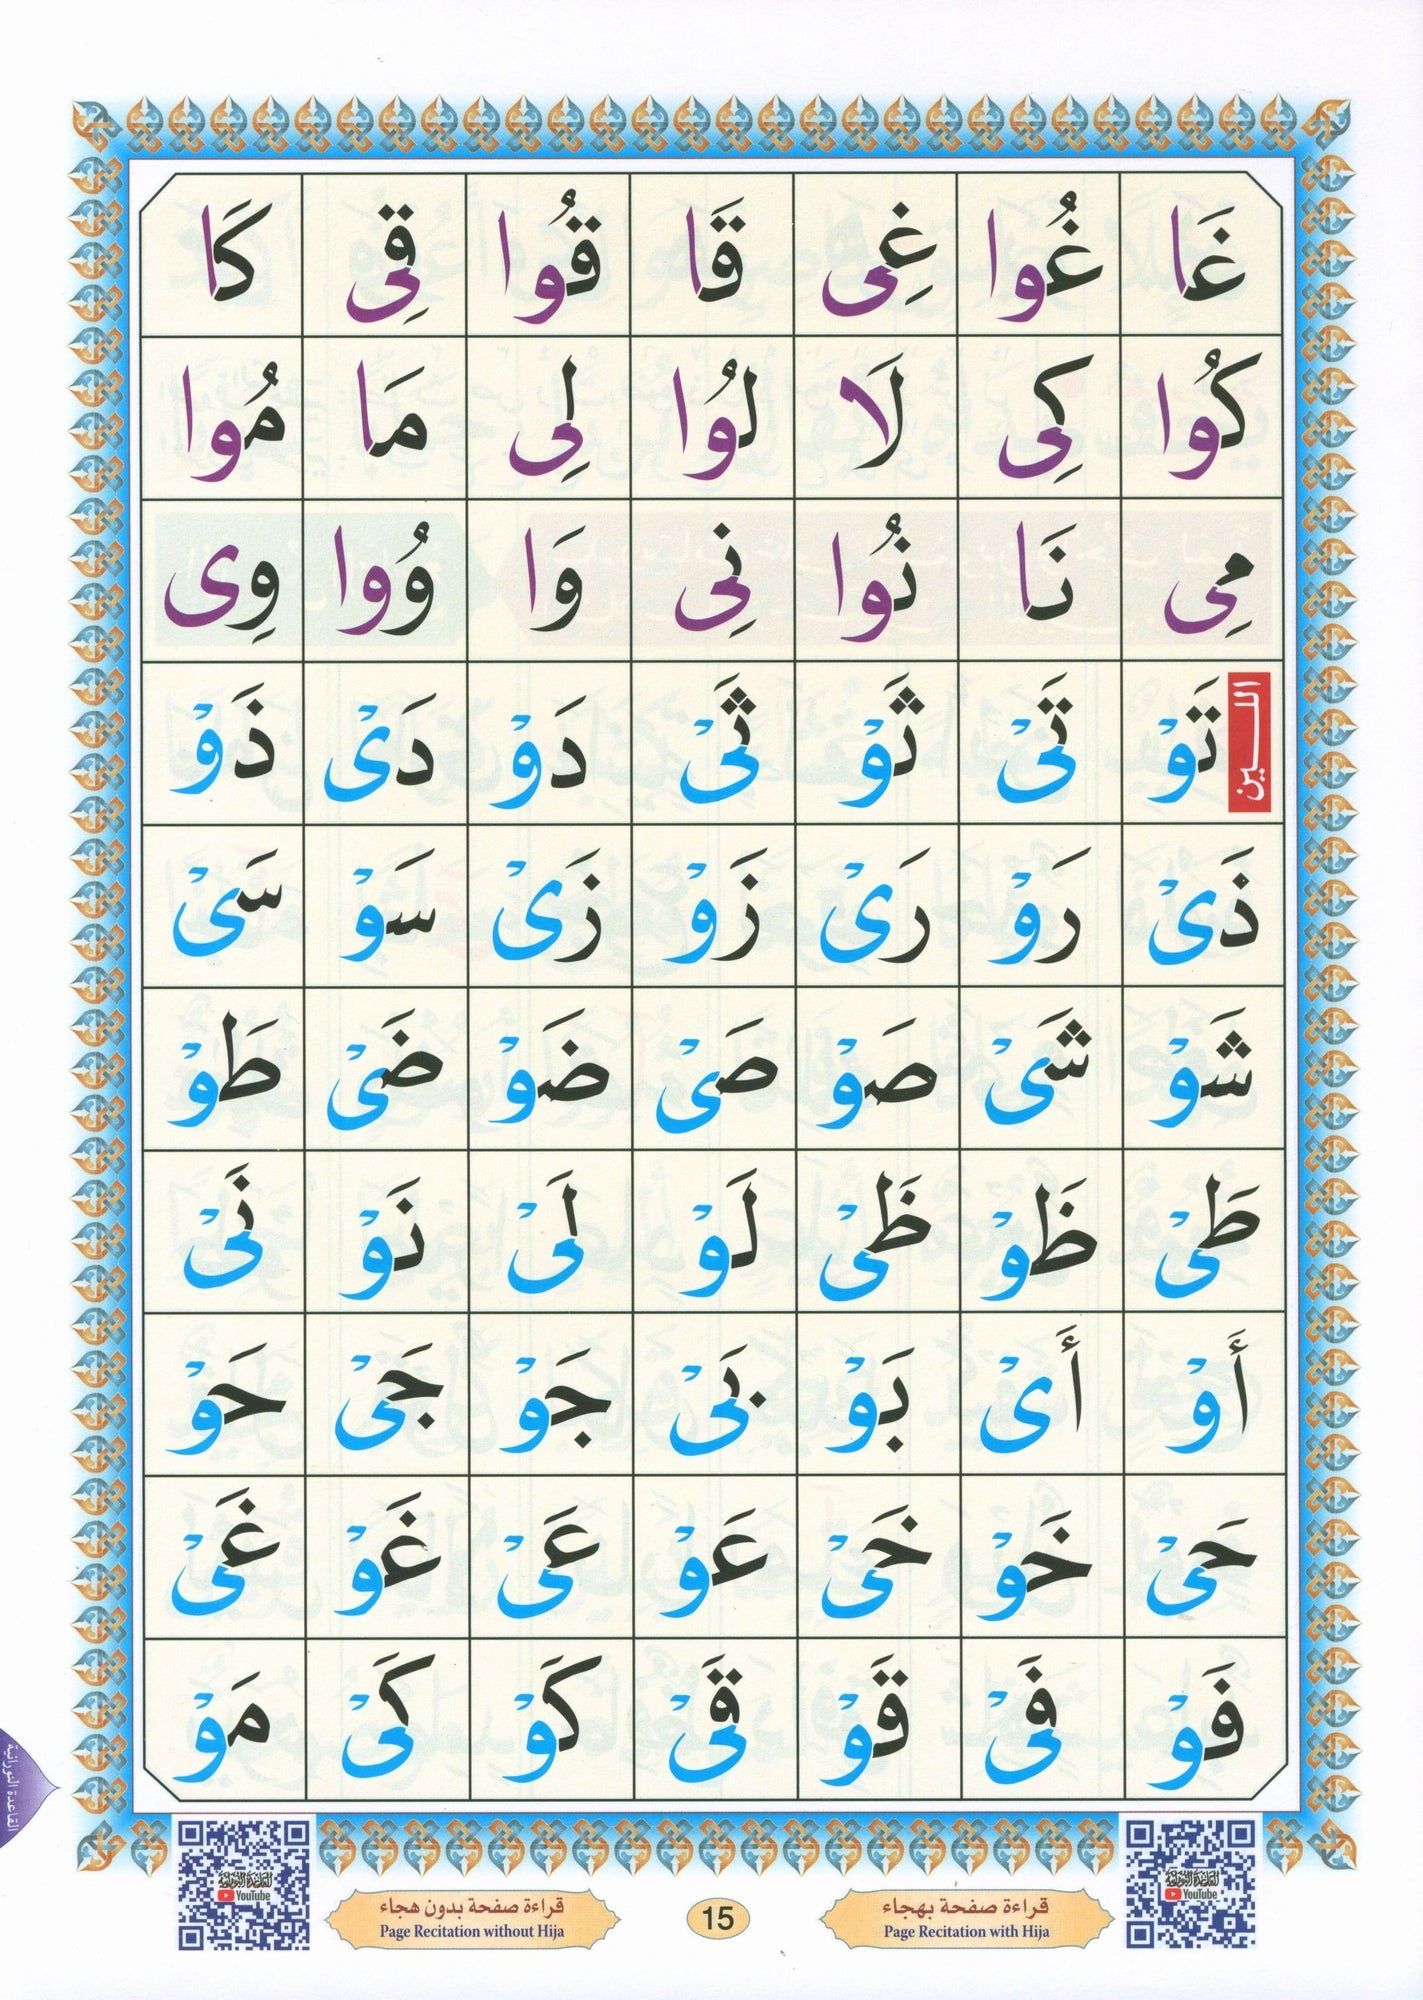 غَا غُوا غِى قَا قُوا قِى كَا
كُوا كِى لَا لُوا لِى مَا مُوا
مِى نَا نُوا نِى وَا وُوا وِى
الليـــن
تَوْ تَىْ ثَوْ ثَىْ دَوْ دَىْ ذَوْ
ذَىْ رَوْ رَىْ زَوْ زَىْ سَوْ سَىْ
شَوْ شَىْ صَوْ صَىْ ضَوْ ضَىْ طَوْ
طَىْ ظَوْ ظَىْ لَوْ لَىْ نَوْ نَىْ
أَوْ أَىْ بَوْ بَىْ جَوْ جَىْ حَوْ
حَىْ خَوْ خَىْ عَوْ عَىْ غَوْ غَىْ
فَوْ فَىْ قَوْ قَىْ كَوْ كَىْ مَوْ
القاعدة النورانية
القاعدة النورانية
YouTube
قراءة صفحة بهجاء
Page Recitation with Hija
15
قراءة صفحة بدون هجاء
Page Recitation without Hija
القاعدة النورانية
YouTube